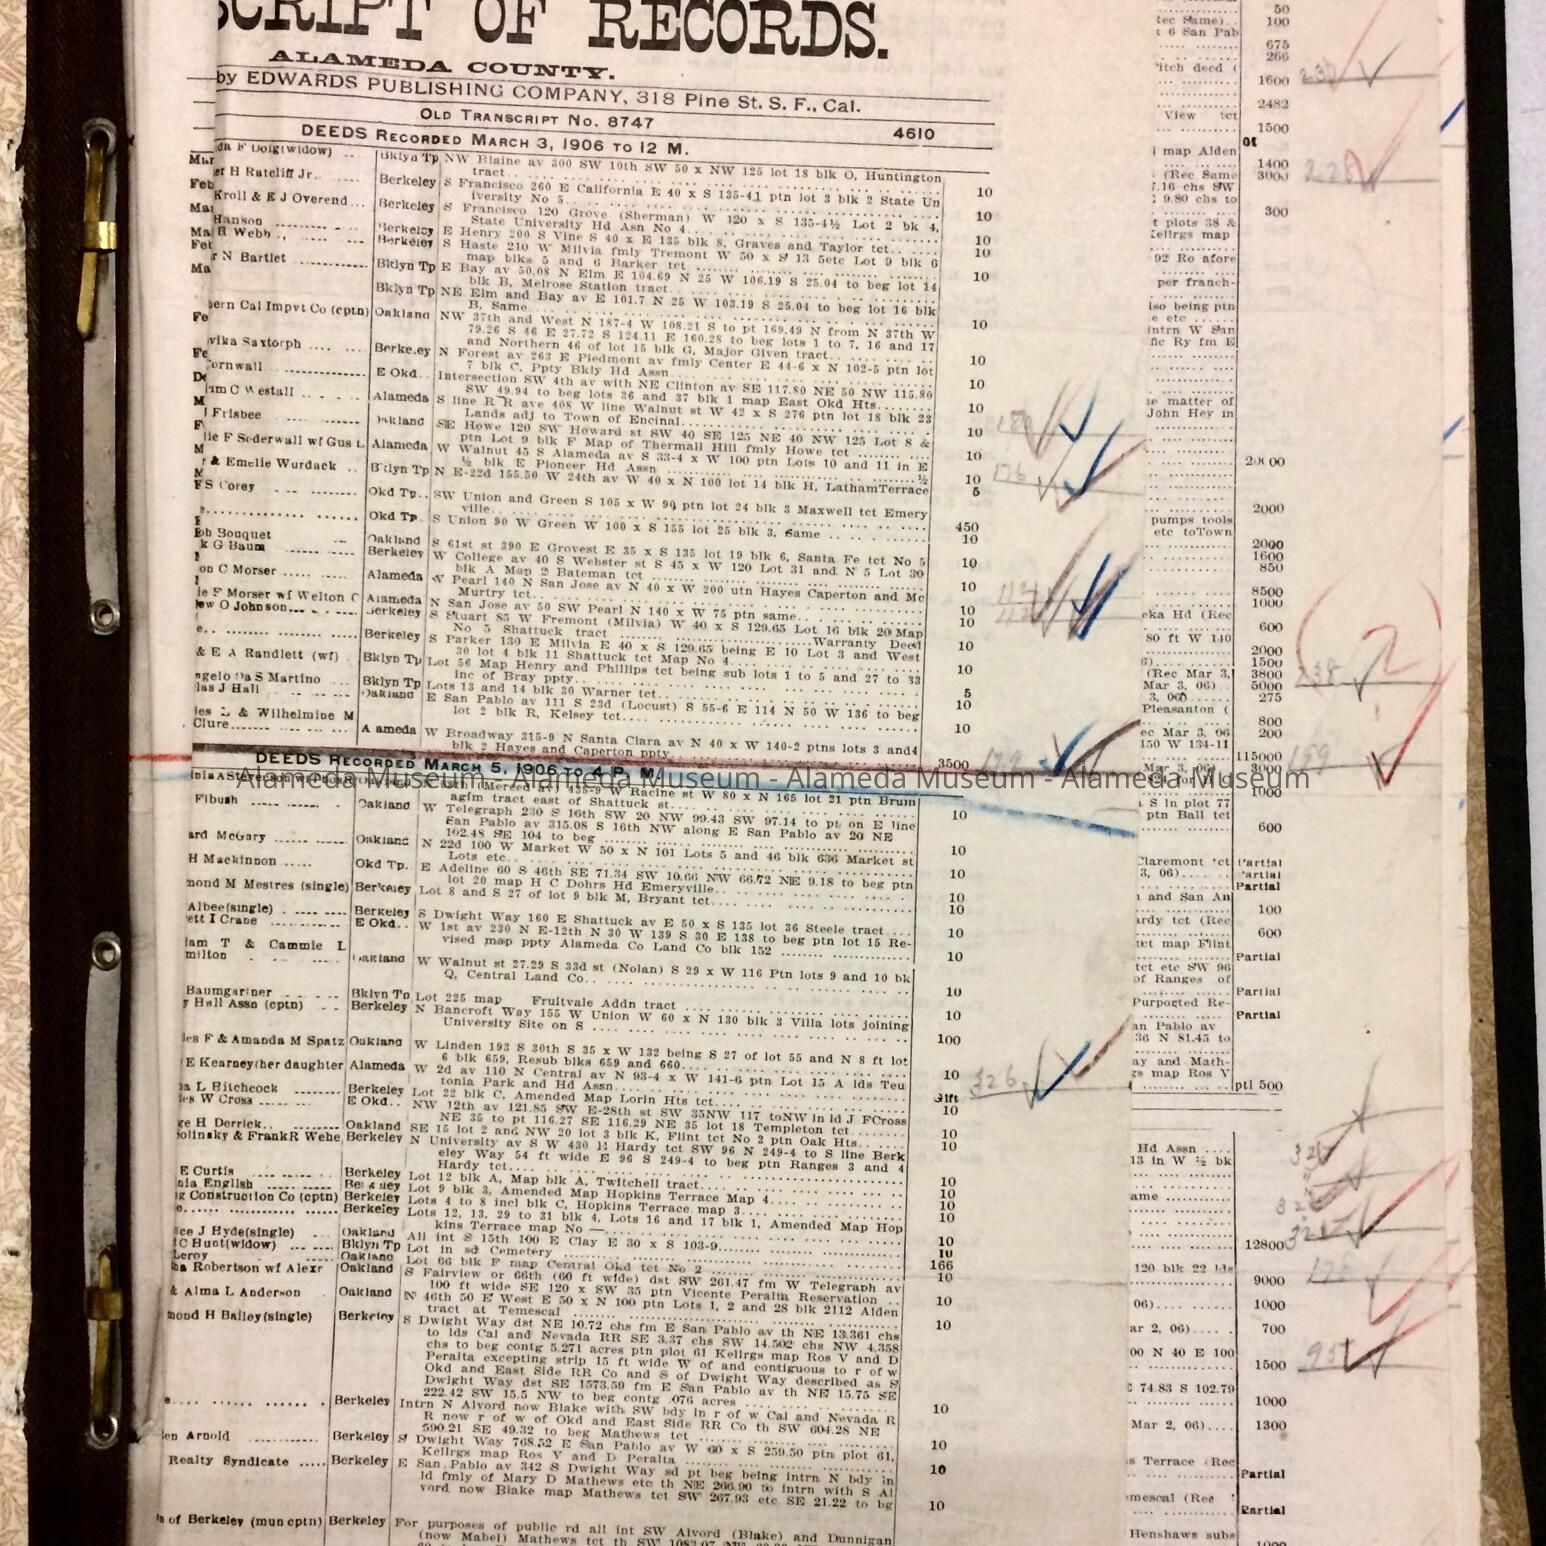 SCRIPT OF RECORDS.
ALAMEDA COUNTY.
by EDWARDS PUBLISHING COMPANY, 318 Pine St. S. F., Cal.
OLD TRANSCRIPT NO. 8747 4610
DEEDS RECORDED MARCH 3, 1906 TO 12 M.
da F Doig(widow) Bklyn Tp NW Blaine av 300 SW 10th SW 50 x NW 125 lot 18 blk O, Huntington
tract 10
er H Ratcliff Jr Berkeley S Francisco 260 E California E 40 x S 135-41 ptn lot 3 blk 2 State Un
iversity No 5 10
Kroll & E J Overend Berkeley S Francisco 120 Grove (Sherman) W 120 x S 135-4½ Lot 2 bk 4,
State University Hd Asn No 4 10
Hanson Berkeley E Henry 200 S Vine S 40 x E 135 blk 8, Graves and Taylor tct 10
H Webb Berkeley S Haste 210 W Milvia fmly Tremont W 50 x S 13 5etc Lot 9 blk 6
map blks 5 and 6 Barker tct 10
r N Bartlet Bklyn Tp E Bay av 50.08 N Elm E 104.69 N 25 W 106.19 S 25.04 to beg lot 14
blk B, Melrose Station tract
Bklyn Tp NE Elm and Bay av E 101.7 N 25 W 103.19 S 25.04 to beg lot 16 blk
B, Same 10
hern Cal Impvt Co (cptn) Oakland NW 37th and West N 187-4 W 108.21 S to pt 169.49 N from N 37th W
79.26 S 46 E 27.72 S 124.11 E 160.28 to beg lots 1 to 7, 16 and 17
and Northern 46 of lot 15 blk G, Major Given tract 10
vika Saxtorph Berkeley N Forest av 263 E Piedmont av fmly Center E 44-6 x N 102-5 ptn lot
7 blk C, Ppty Bkly Hd Assn 10
Cornwall E Okd Intersection SW 4th av with NE Clinton av SE 117.80 NE 50 NW 115.80
SW 49.94 to beg lots 36 and 37 blk 1 map East Okd Hts 10
am C Westall Alameda S line R R ave 408 W line Walnut st W 42 x S 276 ptn lot 18 blk 23
Lands adj to Town of Encinal 10
Frisbee Oakland SE Howe 120 SW Howard st SW 40 SE 125 NE 40 NW 125 Lot 8 &
ptn Lot 9 blk F Map of Thermall Hill fmly Howe tct 10
lie F Sederwall wf Gus L Alameda W Walnut 45 S Alameda av S 33-4 x W 100 ptn Lots 10 and 11 in E
½ blk E Pioneer Hd Assn 10
& Emelie Wurdack Bklyn Tp N E-22d 155.50 W 24th av W 40 x N 100 lot 14 blk H, LathamTerrace 5
F S Corey Okd Tp SW Union and Green S 105 x W 90 ptn lot 24 blk 3 Maxwell tct Emery
ville 450
Okd Tp S Union 90 W Green W 100 x S 155 lot 25 blk 3, Same 10
ob Bouquet Oakland S 61st st 390 E Grovest E 35 x S 135 lot 19 blk 6, Santa Fe tct No 5 10
k G Baum Berkeley W College av 40 S Webster st S 45 x W 120 Lot 31 and N 5 Lot 30
blk A Map 2 Bateman tct 10
on C Morser Alameda W Pearl 140 N San Jose av N 40 x W 200 utn Hayes Caperton and Mc
Murtry tct 10
ie F Morser wf Welton C Alameda N San Jose av 50 SW Pearl N 140 x W 75 ptn same 10
ow O Johnson Berkeley S Stuart 85 W Fremont (Milvia) W 40 x S 129.65 Lot 16 blk 20 Map
No 5 Shattuck tract Warranty Deed 10
Berkeley S Parker 130 E Milvia E 40 x S 129.65 being E 10 Lot 3 and West
30 lot 4 blk 11 Shattuck tct Map No 4 10
& E A Randlett (wf) Bklyn Tp Lot 56 Map Henry and Phillips tct being sub lots 1 to 5 and 27 to 33
inc of Bray ppty 5
ngelo Da S Martino Bklyn Tp Lots 13 and 14 blk 30 Warner tct 10
las J Hall Oakland E San Pablo av 111 S 23d (Locust) S 55-6 E 114 N 50 W 136 to beg
lot 2 blk R, Kelsey tct 10
les L & Wilhelmine M
Clure Alameda W Broadway 315-9 N Santa Clara av N 40 x W 140-2 ptns lots 3 and4
blk 2 Hayes and Caperton ppty 3500
DEEDS RECORDED MARCH 5, 1906 TO 4 P. M.
Alameda Museum - Alameda Museum - Alameda Museum - Alameda Museum
(Merced av) 435-9 W Racine st W 80 x N 165 lot 21 ptn Brum
agim tract east of Shattuck st 10
Fibush Oakland W Telegraph 230 S 16th SW 20 NW 99.43 SW 97.14 to pt on E line
San Pablo av 315.08 S 16th NW along E San Pablo av 20 NE
102.48 SE 104 to beg 10
ard McGary Oakland N 22d 100 W Market W 50 x N 101 Lots 5 and 46 blk 636 Market st
Lots etc 10
H Mackinnon Okd Tp. E Adeline 60 S 46th SE 71.34 SW 10.66 NW 66.72 NE 9.18 to beg ptn
lot 20 map H C Dohrs Hd Emeryville 10
mond M Mestres (single) Berkeley Lot 8 and S 27 of lot 9 blk M, Bryant tct 10
Albee(single) Berkeley S Dwight Way 160 E Shattuck av E 50 x S 135 lot 36 Steele tract 10
ett I Crane E Okd W 1st av 230 N E-12th N 30 W 139 S 30 E 138 to beg ptn lot 15 Re-
vised map ppty Alameda Co Land Co blk 152 10
iam T & Cammie L
milton Oakland W Walnut st 27.29 S 33d st (Nolan) S 29 x W 116 Ptn lots 9 and 10 bk
Q, Central Land Co 10
Baumgartner Bklyn Tp Lot 225 map Fruitvale Addn tract 10
y Hall Assn (cptn) Berkeley N Bancroft Way 155 W Union W 60 x N 130 blk 3 Villa lots joining
University Site on S 100
les F & Amanda M Spatz Oakland W Linden 193 S 30th S 35 x W 132 being S 27 of lot 55 and N 8 ft lot
6 blk 659, Resub blks 659 and 660 10
E Kearney(her daughter Alameda W 2d av 110 N Central av N 93-4 x W 141-6 ptn Lot 15 A lds Teu
tonia Park and Hd Assn Gift
na L Hitchcock Berkeley Lot 22 blk C, Amended Map Lorin Hts tct 10
les W Cross E Okd NW 12th av 121.85 SW E-28th st SW 35NW 117 toNW ln ld J FCross
NE 35 to pt 116.27 SE 116.29 NE 35 lot 18 Templeton tct 10
ge H Derrick Oakland SE 15 lot 2 and NW 20 lot 3 blk K, Flint tct No 2 ptn Oak Hts 10
olinsky & FrankR Wehe Berkeley N University av S W 430 ft Hardy tct SW 96 N 249-4 to S line Berk
eley Way 54 ft wide E 96 S 249-4 to beg ptn Ranges 3 and 4
Hardy tct 10
E Curtis Berkeley Lot 12 blk A, Map blk A, Twitchell tract 10
nia English Berkeley Lot 9 blk 3, Amended Map Hopkins Terrace Map 4 10
g Construction Co (cptn) Berkeley Lots 4 to 8 incl blk C, Hopkins Terrace map 3 10
Berkeley Lots 12, 13, 29 to 31 blk 4, Lots 16 and 17 blk 1, Amended Map Hop
kins Terrace map No 10
ice J Hyde(single) Oakland All int S 15th 100 E Clay E 30 x S 103-9 10
C Hunt(widow) Bklyn Tp Lot in sd Cemetery 166
Leroy Oakland Lot 66 blk F map Central Okd tct No 2 10
ha Robertson wf Alexr Oakland S Fairview or 66th (60 ft wide) dst SW 261.47 fm W Telegraph av
100 ft wide SE 120 x SW 35 ptn Vicente Peralta Reservation 10
& Alma L Anderson Oakland N 46th 50 E West E 50 x N 100 ptn Lots 1, 2 and 28 blk 2112 Alden
tract at Temescal 10
mond H Bailey(single) Berkeley S Dwight Way dst NE 10.72 chs fm E San Pablo av th NE 13.361 chs
to lds Cal and Nevada RR SE 3.37 chs SW 14.502 chs NW 4.358
chs to beg contg 5.271 acres ptn plot 61 Kellrgs map Ros V and D
Peralta excepting strip 15 ft wide W of and contiguous to r of w
Okd and East Side RR Co and S of Dwight Way described as S
Dwight Way dst SE 1573.59 fm E San Pablo av th NE 15.75 SE
222.42 SW 15.5 NW to beg contg .076 acres 10
Berkeley Intrn N Alvord now Blake with SW bdy ln r of w Cal and Nevada R
R now r of w of Okd and East Side RR Co th SW 604.28 NE
590.21 SE 49.32 to beg Mathews tct 10
en Arnold Berkeley S Dwight Way 768.52 E San Pablo av W 60 x S 259.50 ptn plot 61,
Kellrgs map Ros V and D Peralta 10
Realty Syndicate Berkeley E San Pablo av 342 S Dwight Way sd pt beg being intrn N bdy ln
ld fmly of Mary D Mathews etc th NE 266.90 to intrn with S Al
vord now Blake map Mathews tct SW 267.93 etc SE 21.22 to bg 10
n of Berkeley (mun cptn) Berkeley For purposes of public rd all int SW Alvord (Blake) and Dunnigan
(now Mabel) Mathews tct th SW
50
tec Same) 100
6 San Pab
675
266
itch deed (
1600
2482
View tct
1500
map Alden
1400
(Rec Same 3000
7.16 chs SW
9.80 chs to
300
t plots 38 &
Kellrgs map
92 Ro afore
per franch-
lso being ptn
e etc
intrn W San
fic Ry fm E
ie matter of
John Hey in
2000
pumps tools
etc toTown
2000
1600
850
8500
1000
eka Hd (Rec
600
80 ft W 140
2000
1500
(Rec Mar 3, 3800
Mar 3, 06) 5000
3, 06) 275
Pleasanton (
800
ec Mar 3, 06 200
150 W 134-11
115000
3000
1000
S ln plot 77
ptn Ball tct
600
Claremont tct Partial
3, 06) Partial
Partial
and San An
100
ardy tct (Rec
600
tct map Flint
Partial
tct etc SW 96
of Ranges of
Partial
Purported Re-
Partial
an Pablo av
36 N 81.45 to
ay and Math-
gs map Ros V
ptl 500
Hd Assn
13 in W ½ bk
ame
12800
120 blk 22 lds
9000
06) 1000
ar 2, 06) 700
00 N 40 E 100
1500
E 74.83 S 102.79
1000
Mar 2, 06) 1300
s Terrace (Rec
Partial
emescal (Rec
Partial
Henshaws subs
326
238
2